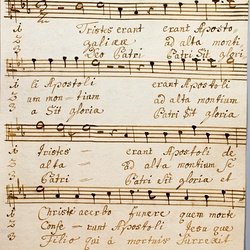 Tristes erant erant Aposto
galilea ad alta monti
Deo Patri Patri Sit glori
li Apostoli erant Apostoli
um mon-tium ad alta montium
a Sit gloria Patri Sit gloria
Tristes - erant Apostoli de
alta ad alta montium se
Patri Patri Sit gloria et
Christi acerbo funere quem morte
Confe-runt Apostoli Jesu que
Filio qui à mortuis Surrexit